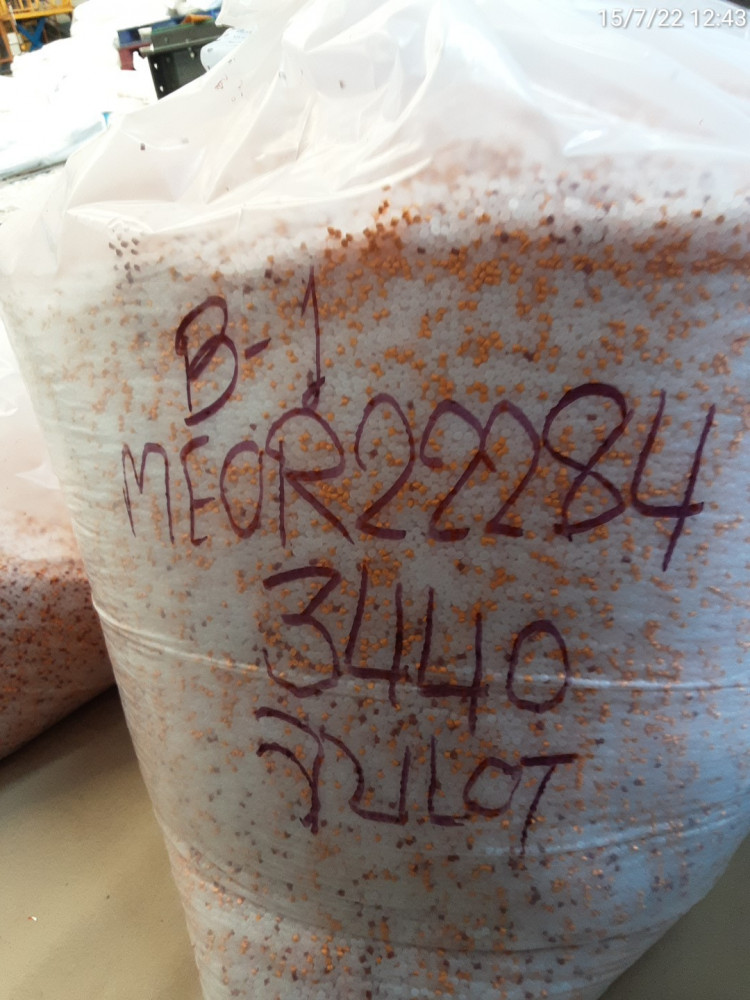 15/7/22 12:43
B-1
MEOR22284
3440
จบLOT